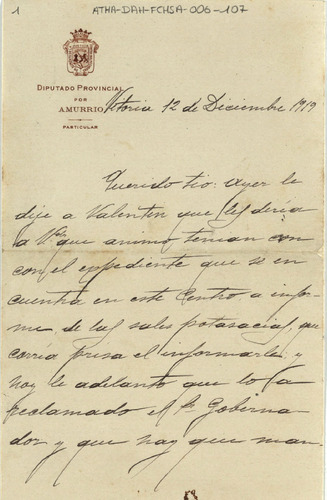 1 ATHA-DAH-FCHSA-006-107
DIPUTADO PROVINCIAL
POR
AMURRIO
PARTICULAR
Vitoria 12 de Diciembre 1919
Querido tio: Ayer le
dije a Valentin que les diria
a Vds que animo tenian con
con el expediente que se en
cuentra en este Centro a infor-
me de las sales potasacias, que
corria prisa el informarle, y
hoy le adelanto que lo ha
reclamado el Sr. Goberna-
dor y que hay que man-